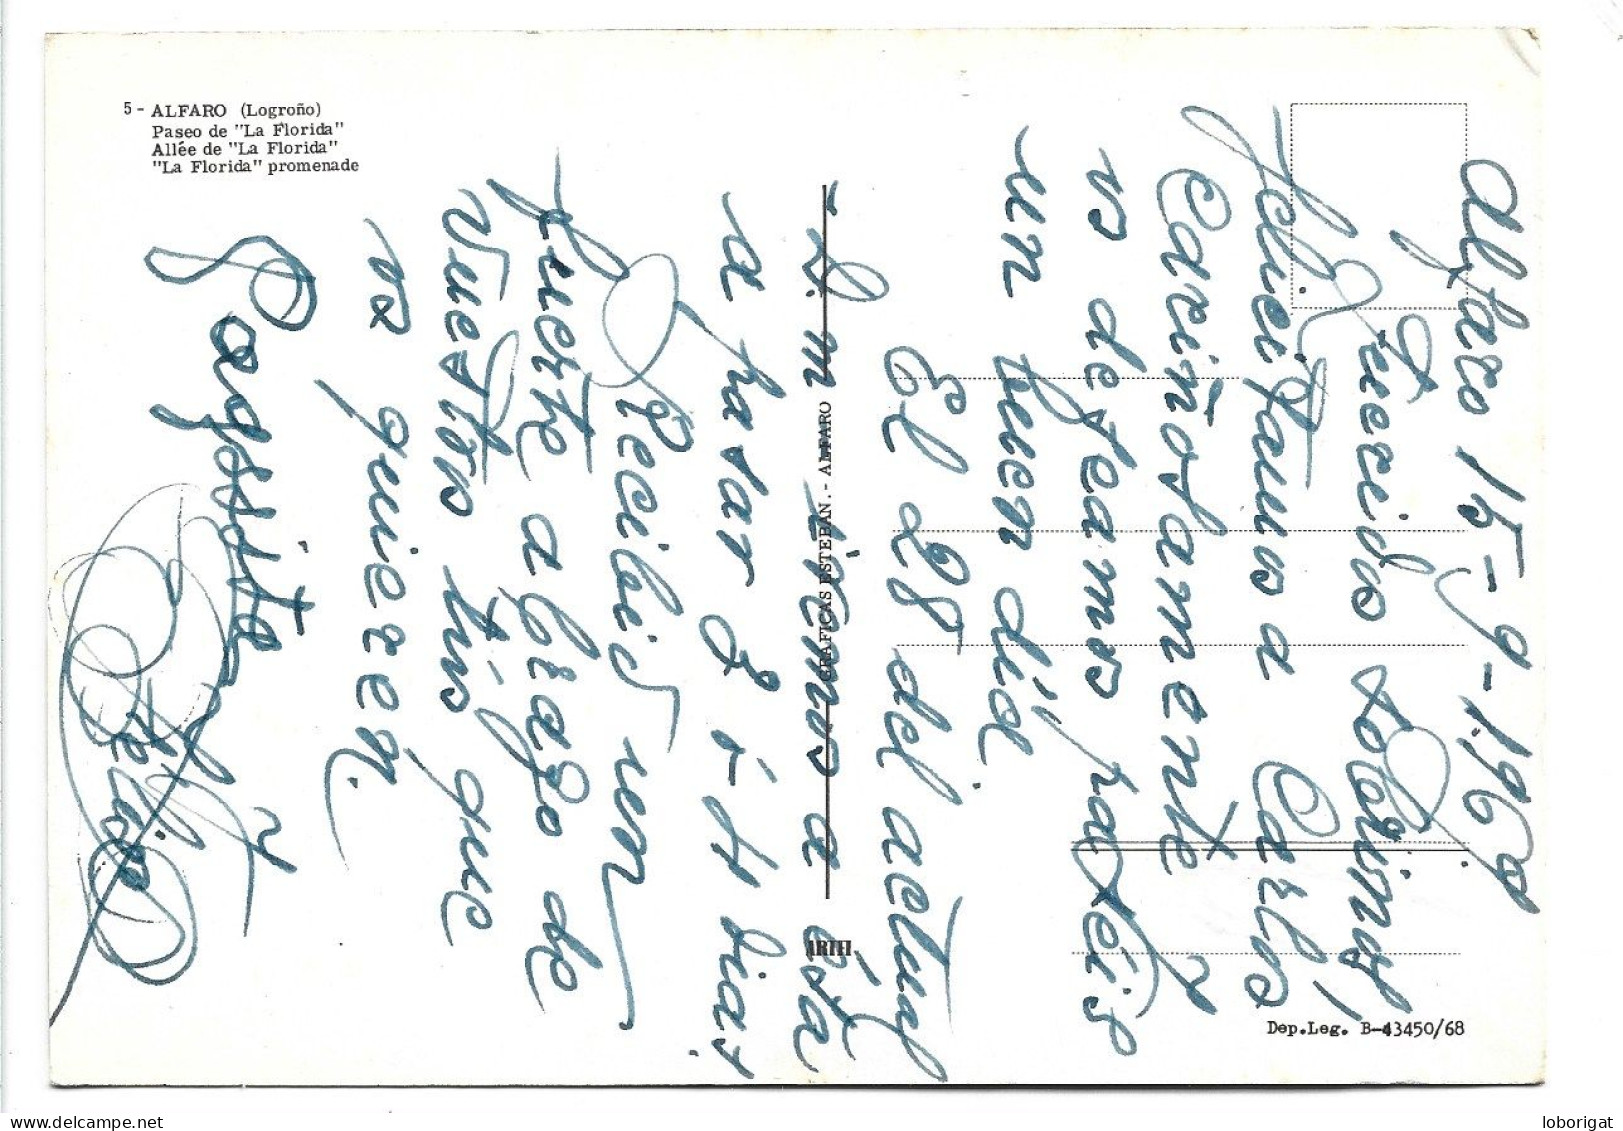 5 - ALFARO (Logroño)
Paseo de "La Florida"
Allée de "La Florida"
"La Florida" promenade
Alfaro 15-9-1.969
Queridos sobrinos,
Felicitamos a Carlos
Cariñosamente y
os deseamos paseis
un buen día
El 28 del actual
S. m. iremos a ésta
a pasar 3 ó 4 dias.
Recibid un
fuerte abrazo de
vuestros tios que
os quieren.
y
Felix
GRAFICAS ESTEBAN. - ALFARO
Dep.Leg. B-43450/68
loborigat